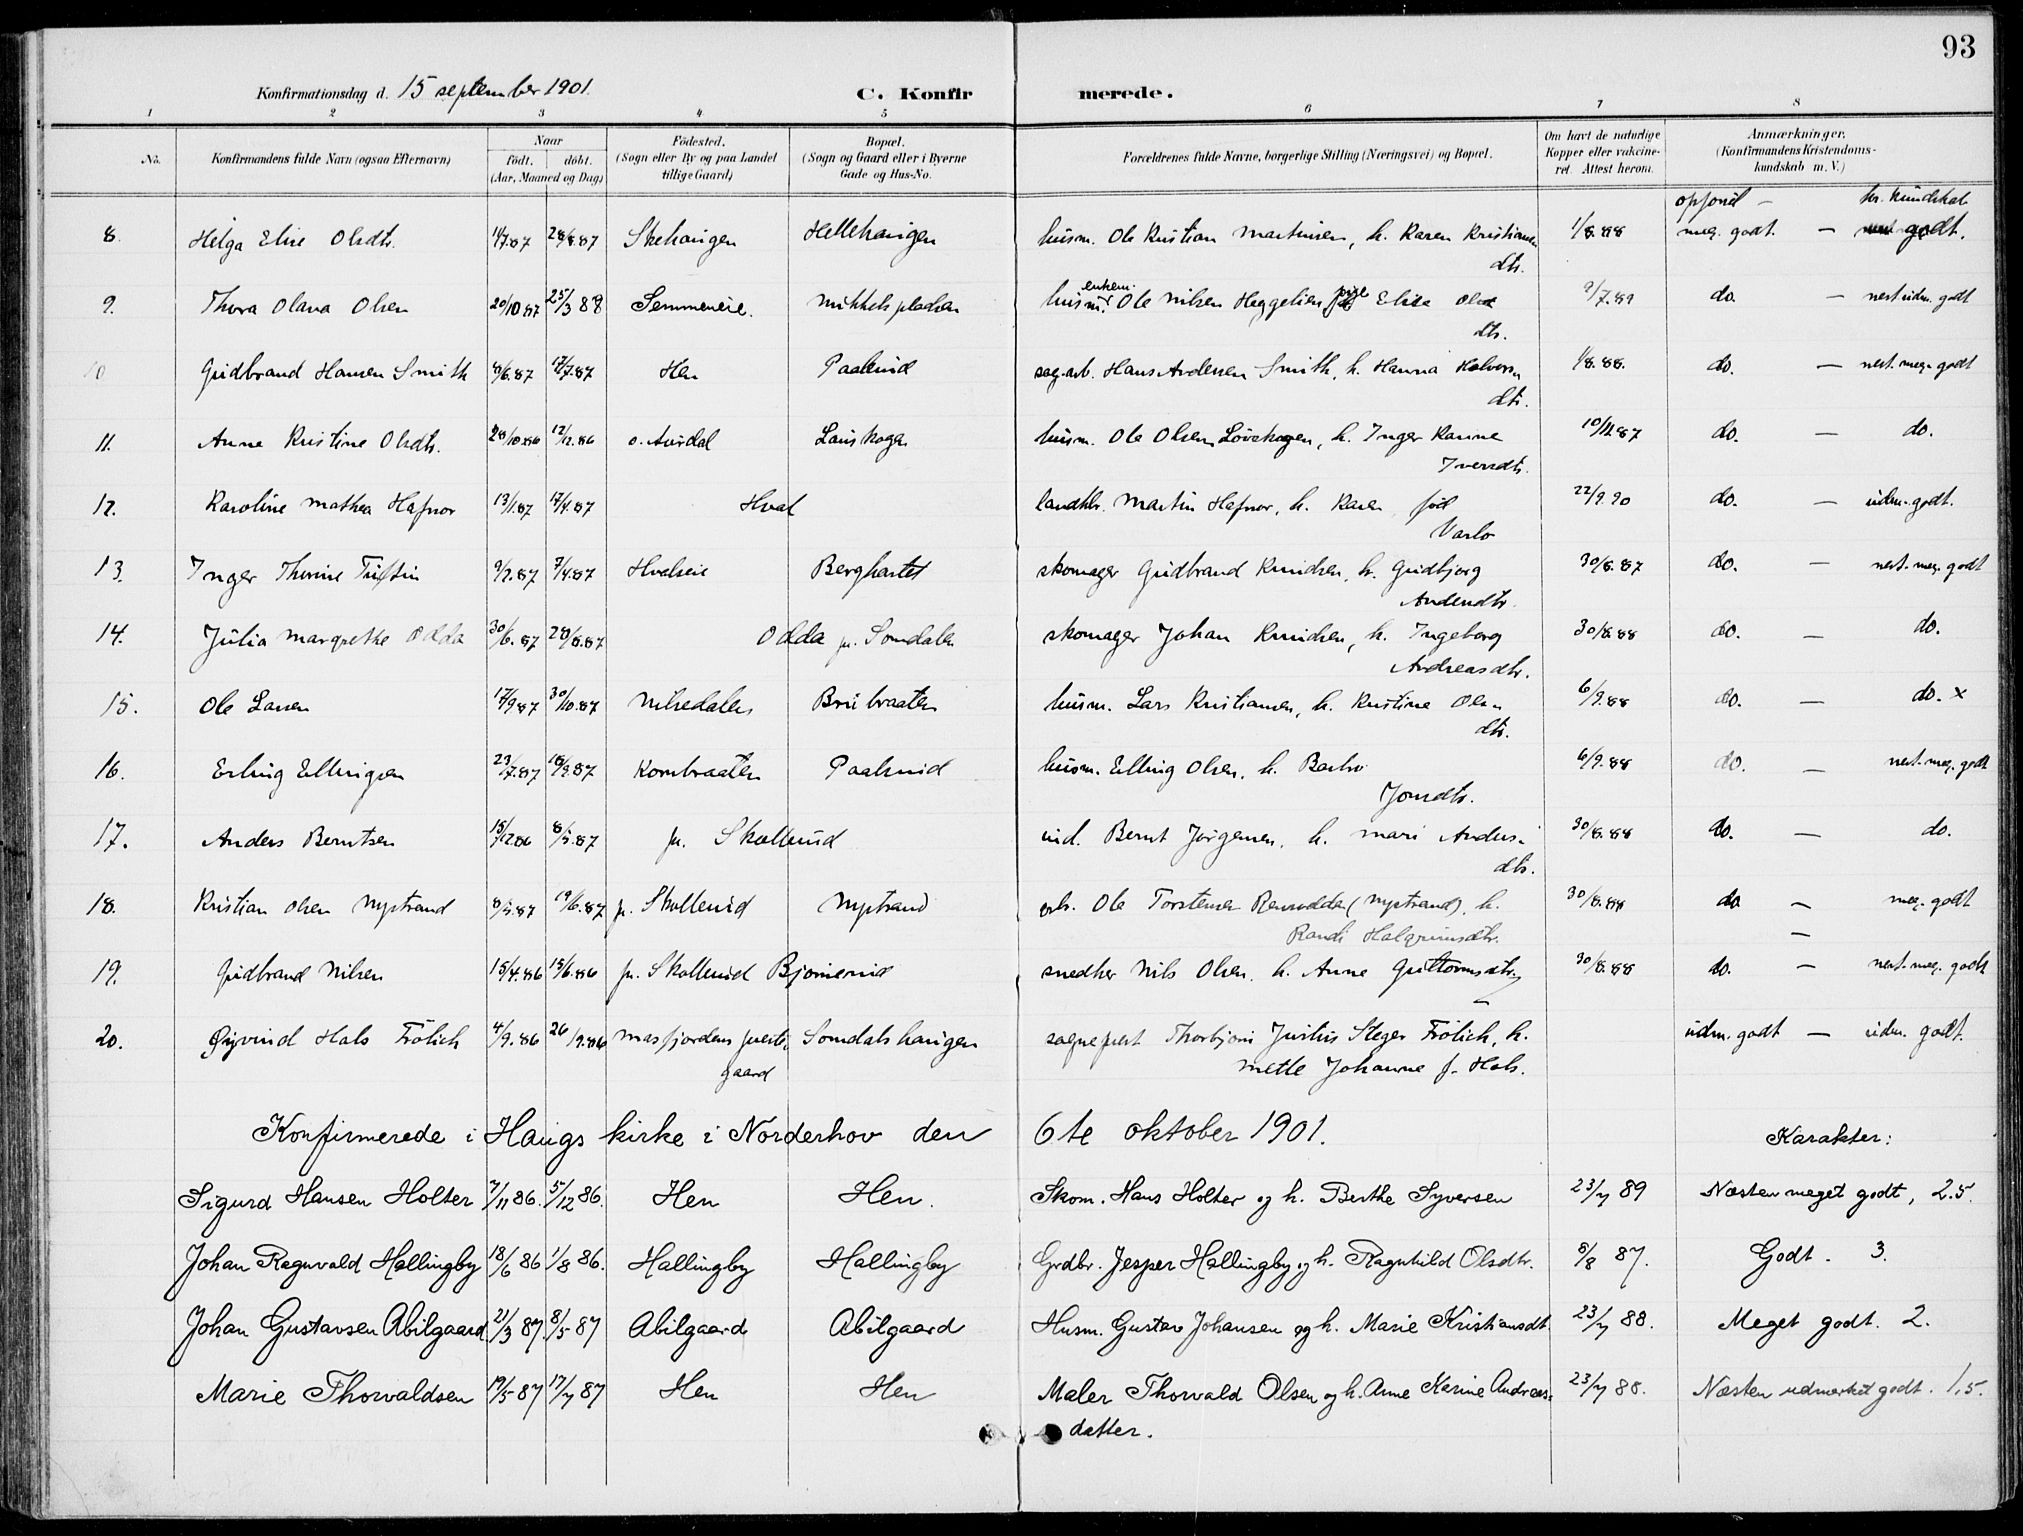 93
Konfirmationsdag d. 15 september 1901. C. Konfirmerede.
1 2 3 4 5 6 7 8
No. Konfirmandens fulde Navn (ogsaa Efternavn) Naar født. døbt. (Aar, Maaned og Dag.) Fødested. (Sogn eller By og paa Landet tillige Gaard) Bopæl. (Sogn og Gaard eller i Byerne Gade og Hus-No. Forældrenes fulde Navne, borgerlige Stilling (Næringsvei) og Bopæl. Om havt de naturlige Kopper eller vakcineret. Attest herom. Anmærkninger. (Konfirmandens Kristendomskundskab m. V.)
opførsel — kr. kundskab
8. Helga Elise Olsdtr. 28/8.87 Skehaugen Hellehaugen husm. Ole Kristian Martinsen, h. Karen Kristiansen 1/8.88 meg. godt. — godt.
dtr.
enkem.
9. Thora Olava Olsen 20/10 87 25/3 88 Semmeneie. Mikkelspladsen husm. Ole Nilsen Heggelien Elise Ols 9/7.89 do. — nest. udm. godt
dtr.
10 Gudbrand Hansen Smith 8/6.87 17/7.87 Hen Paalsrud sag.arb. Hans Andersen Smith, h. Hanna Halvors 1/8.88. do. — nest. meg. godt
dtr.
11. Anne Kristine Olsdtr. 28/10.86 12/12.86 o. Aurdal Lauskogen husm. Ole Olsen Løvskogen, h. Inger Karine 10/11.87 do. — do.
Iversdtr.
12. Karoline Mathea Hafnor 13/1.87 17/4.87 Hval landhdr. Martin Hafnor, h. Karen, fød 22/9.90 do. — udm. godt.
Varlo
13. Inger Thorine Tuftin 9/2.87 7/4.87 Hvalseie Berghastet skomager Gudbrand Knudsen, h. Gudbjørg 30/8.87 do. — nest. meg. godt
Andersdtr.
14. Julia Margrethe Odda 30/6.87 28/8.87 Odda pr. Somdalen skomager Johan Knudsen, h. Ingeborg 30/8.88 do. — do.
Andreasdtr.
15. Ole Larsen 17/9 87 30/10.87 Nilsedalen Brubraaten husm. Lars Kristiansen, h. Kristine Ols 6/9.88 do. — do. x
dtr.
16. Erling Ellingsen 23/7.87 18/9.87 Kornbraaten Paalsrud husm. Elling Olsen, h. Barbro 6/9.88 do. — nest. meg. godt
Jonsdtr.
17. Anders Berntsen 15/12.86 8/5.87 pr. Skollerud ind. Bernt Jørgensen, h. Mari Anders- 30/8.88 do. — do.
dtr.
18. Kristian Olsen Nystrand 8/5.87 19/6.87 pr. Skollerud Nystrand arb. Ole Torstensen Rensødden (Nystrand), h. 30/8.88 do — meg. godt
Randi Halgrimsdtr. —
19. Gudbrand Nilsen 15/4.86 15/6.86 pr. Skollerud Bjonerud snedker Nils Olsen, h. Anne Guttormsdtr. 30/8.88 do. — nest. meg. godt
20. Øyvind Hals Frölich 4/9.86 26/9.86 Masfjordens preste- Somdalshaugen sogneprest Thorbjørn Justus Steger Frölich, h. udm. godt — udm. godt.
gaard Mette Johanne f. Hals.
Konfirmerede i Haugs kirke i Norderhov den 6te oktober 1901. Karakter:
Sigurd Hansen Holter 7/11 86. 5/12 86. Hen Hen. Skom. Hans Holter og h. Berthe Syversen 23/7 89 Næsten meget godt, 2.5.
Johan Ragnvald Hallingby 18/6 86 1/8 86. Hallingby Hallingby Grdbr. Jesper Hallingby og h. Ragnhild Olsdtr. 8/8 87. Godt. 3.
Johan Gustavsen Abilgaard 21/3 87. 8/5 87 Abilgaard Abilgaard Husm. Gustav Johansen og h. Marie Kristiansdt. 23/7 88. Meget godt. 2.
Marie Thorvaldsen 19/5 87 17/7 87 Hen Hen Maler Thorvald Olsen og h. Anne Karine Andreas- 23/7 88. Næsten udmerket godt. 1,5.
datter.